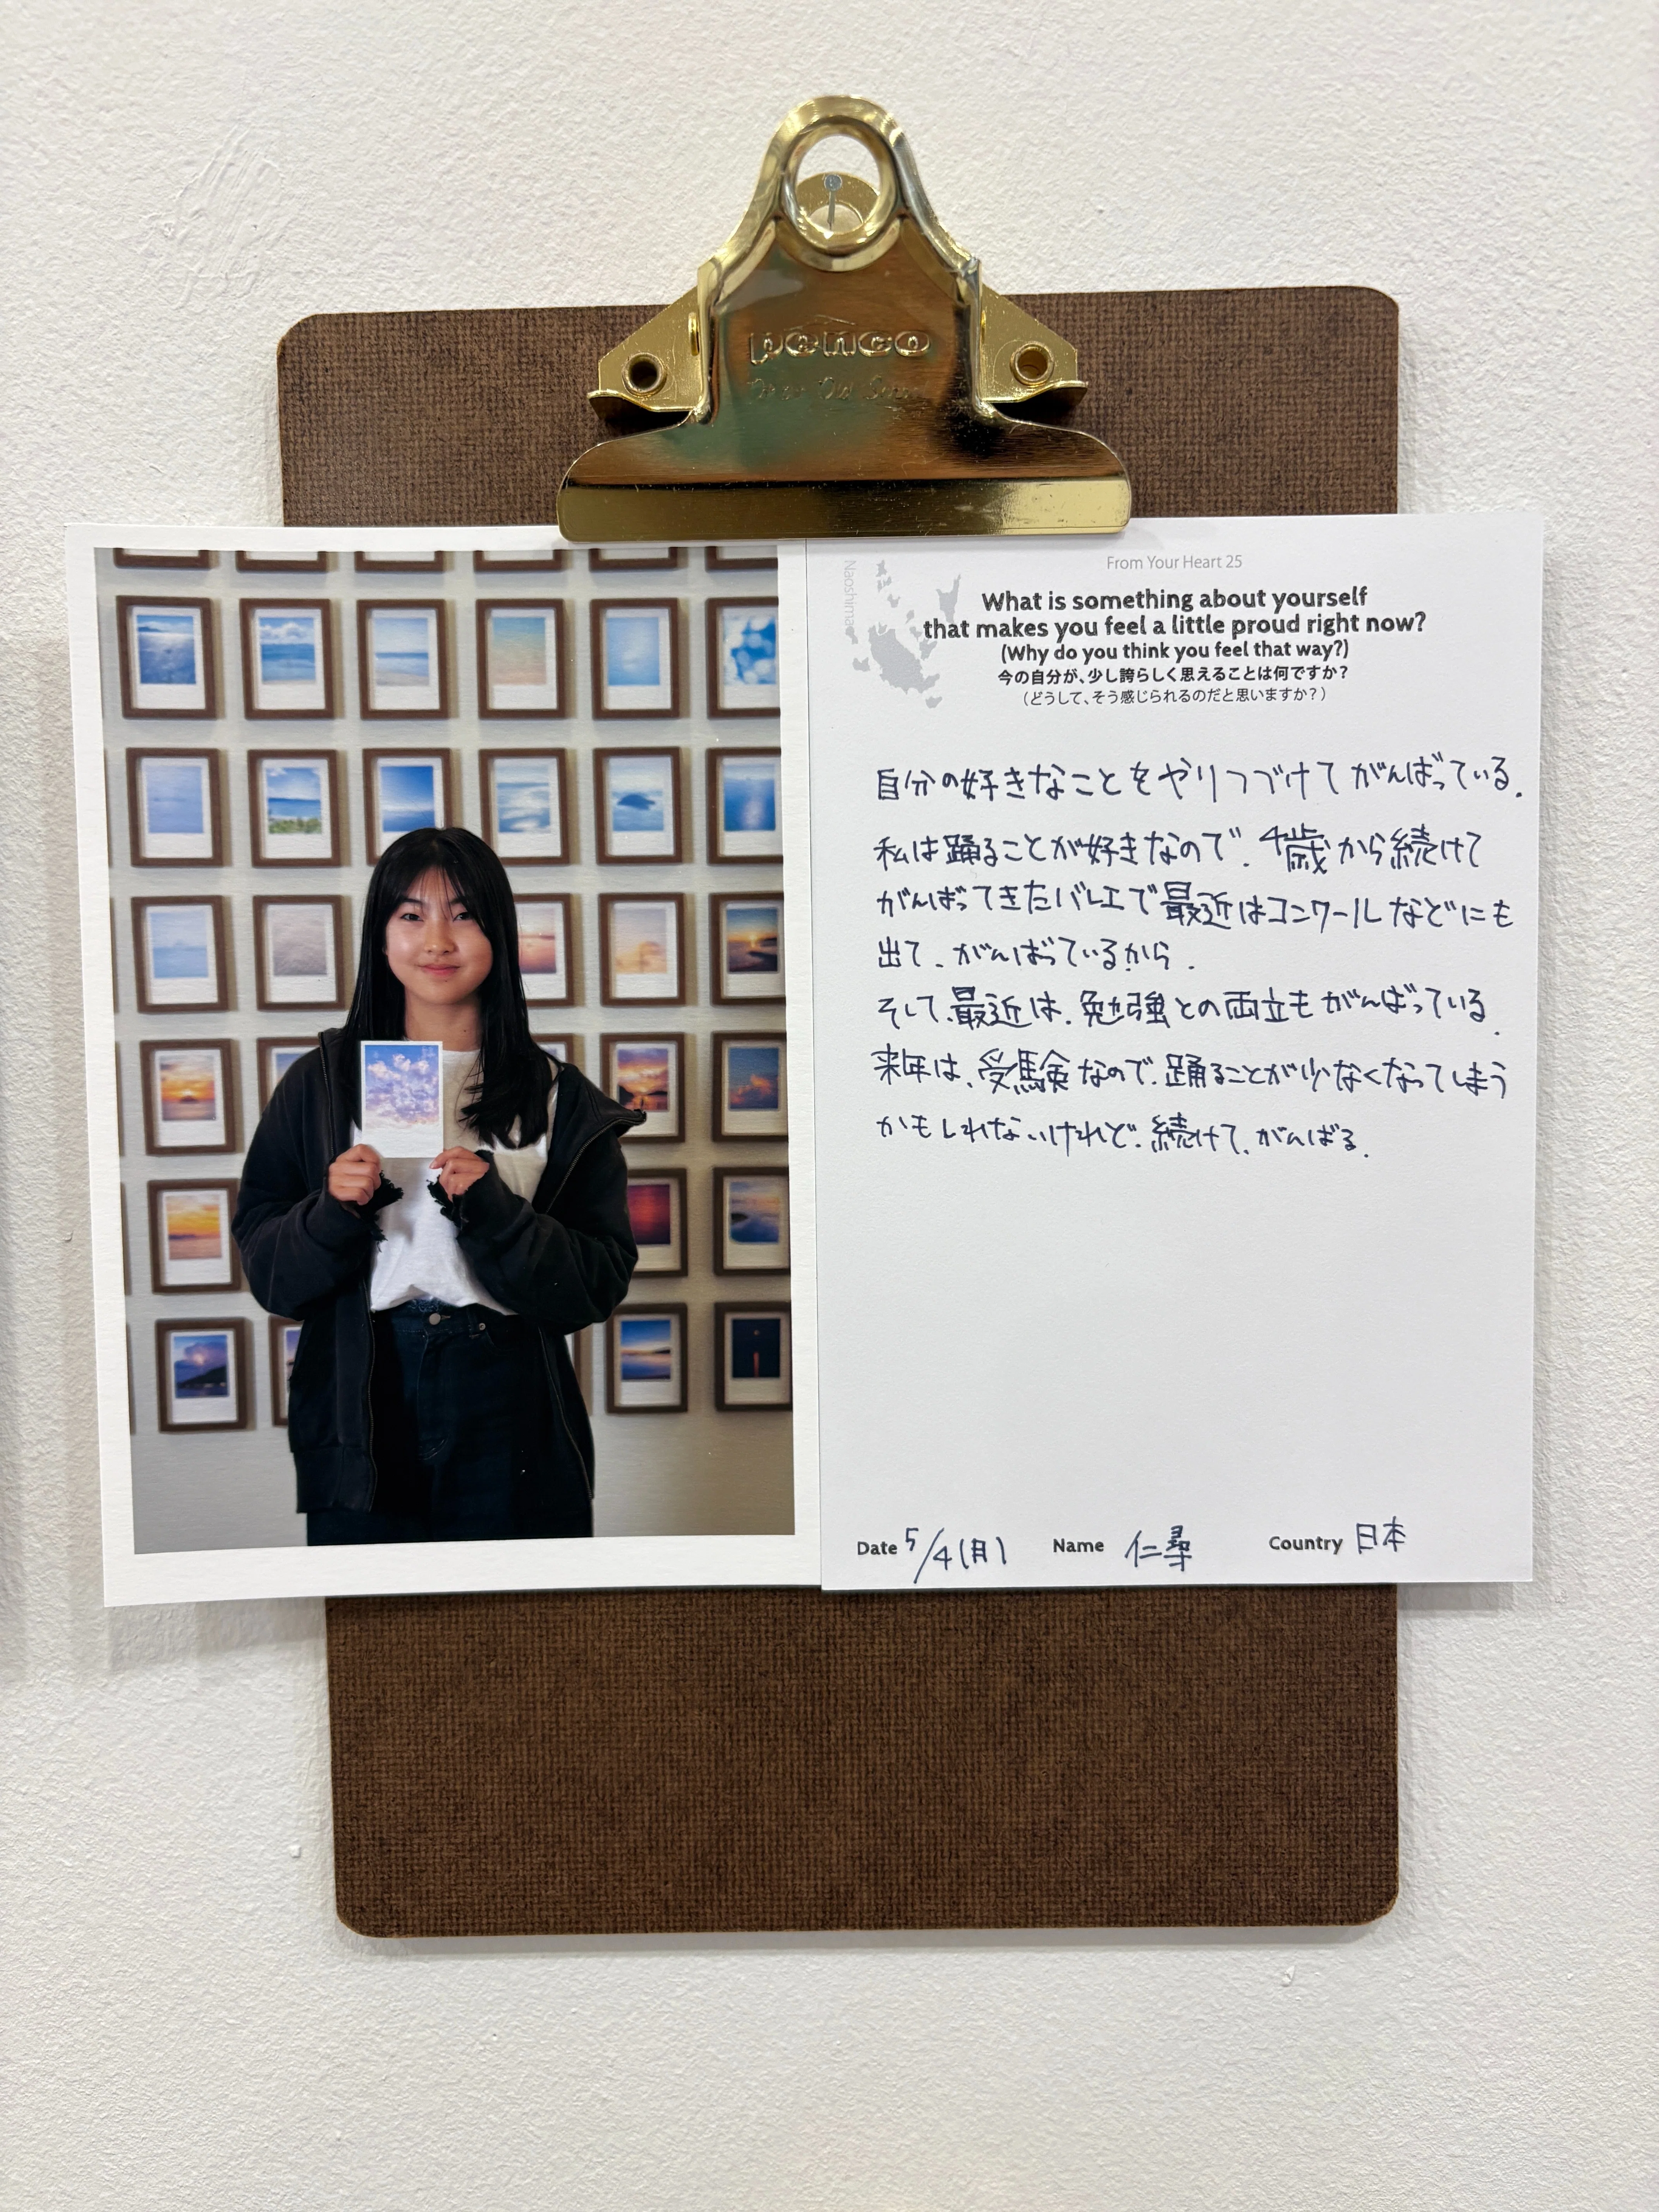 penco
From Your Heart 25
Naoshima
What is something about yourself
that makes you feel a little proud right now?
(Why do you think you feel that way?)
今の自分が、少し誇らしく思えることは何ですか?
(どうして、そう感じられるのだと思いますか?)
自分の好きなことをやりつづけてがんばっている.
私は踊ることが好きなので、4歳から続けて
がんばってきたバレエで最近はコンクールなどにも
出て、がんばっているから.
そして、最近は、勉強との両立もがんばっている.
来年は、受験なので、踊ることが少なくなってしまう
かもしれないけれど、続けて、がんばる.
Date 5/4(月) Name 仁尋 Country 日本